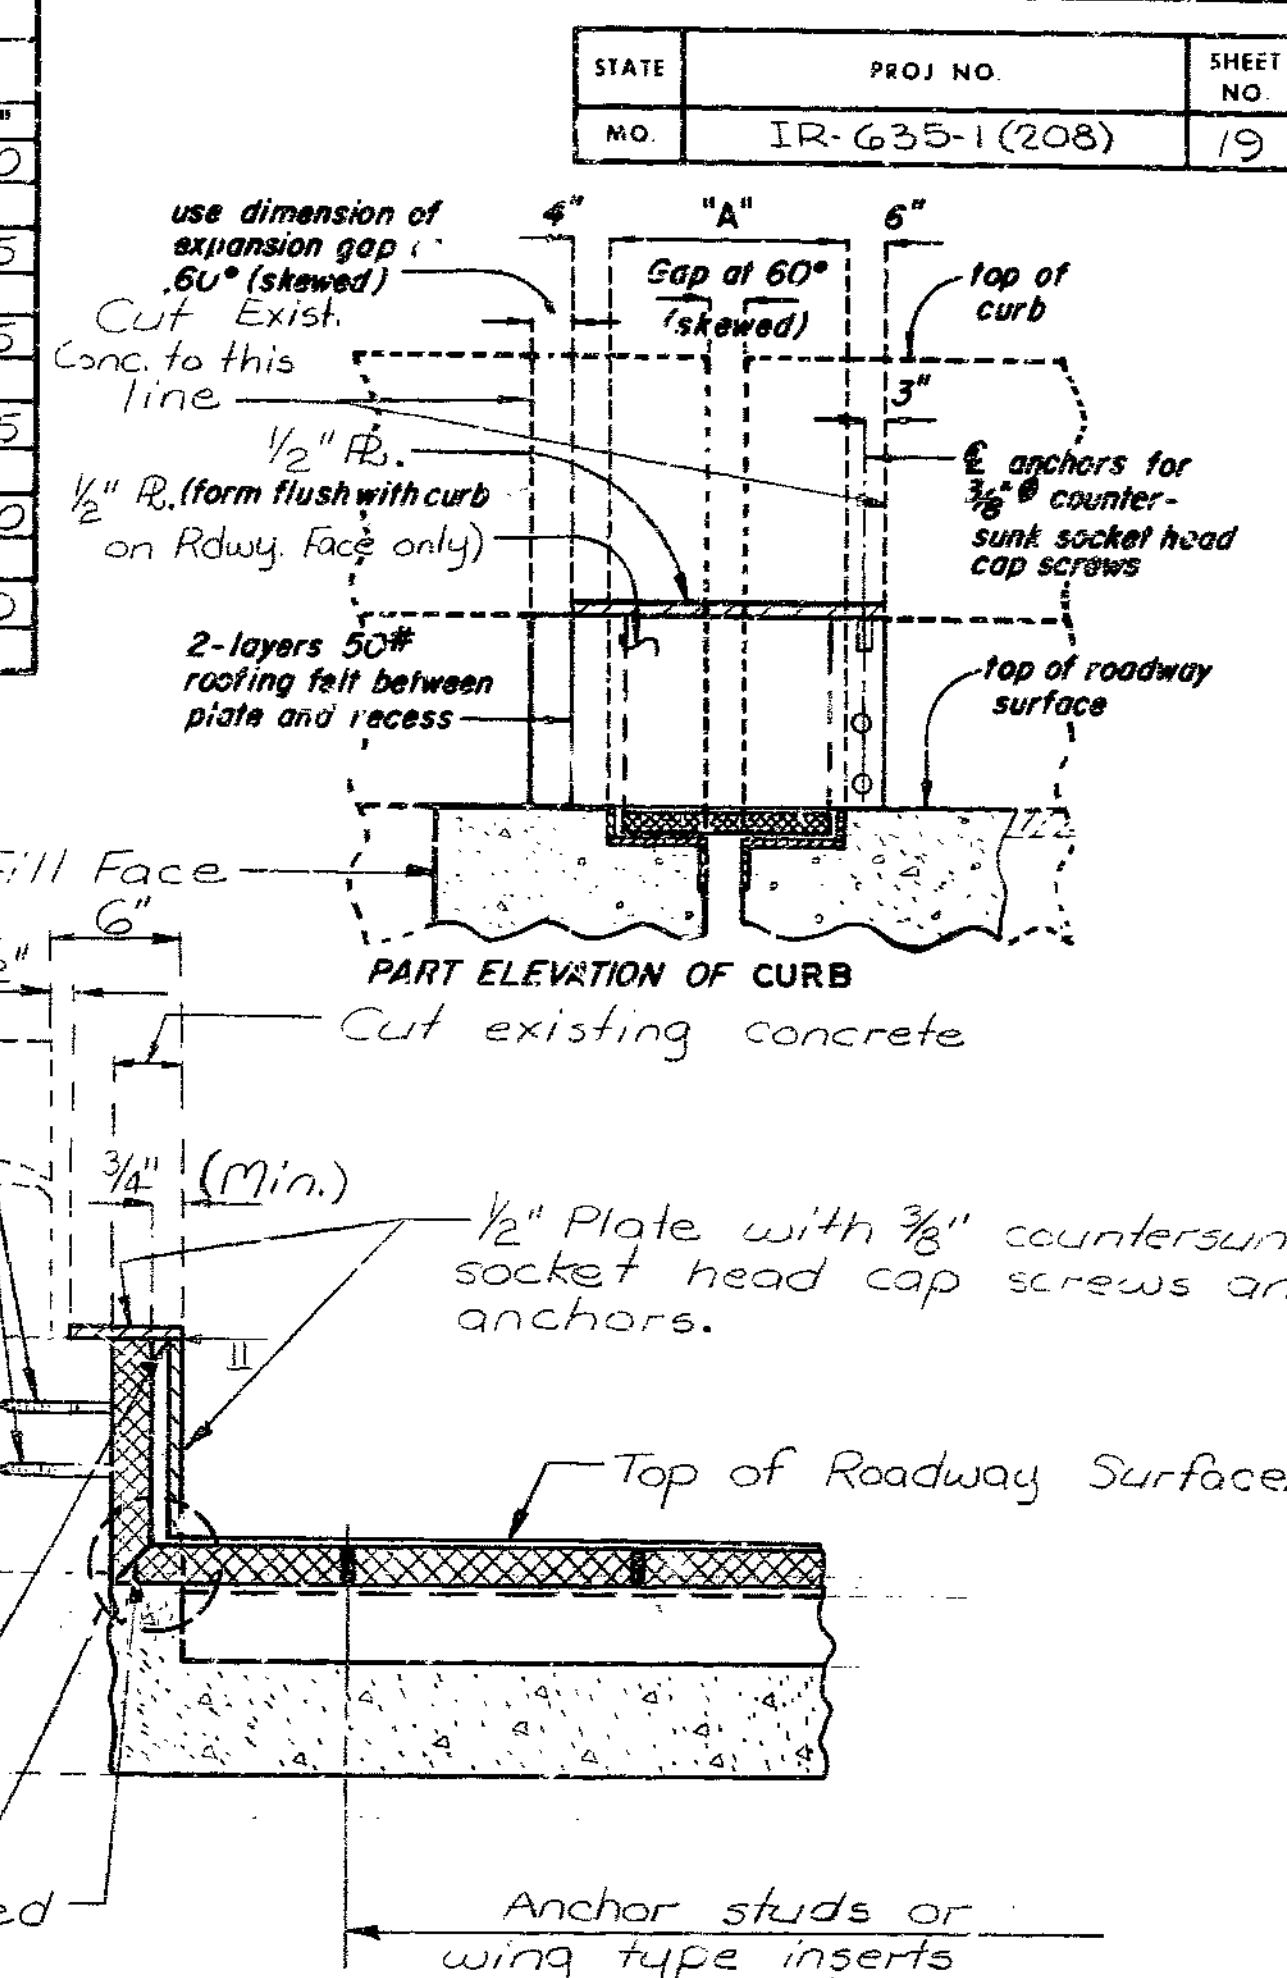 STATE
PROJ NO.
SHEET NO.
MO.
IR-635-1(208)
19
use dimension of
expansion gap
60° (skewed)
4"
"A"
6"
Gap at 60°
(skewed)
top of
curb
Cut Exist.
Conc. to this
line
3"
1/2" PL.
1/2" PL. (form flush with curb
on Rdwy. Face only)
℄ anchors for
3/8"ø counter-
sunk socket head
cap screws
2-layers 50#
roofing felt between
plate and recess
top of roadway
surface
Fill Face
6"
PART ELEVATION OF CURB
Cut existing concrete
3/4" (Min.)
1/2" Plate with 3/8"
socket head cap screws
anchors.
Top of Roadway Surface
Anchor studs or
wing type inserts